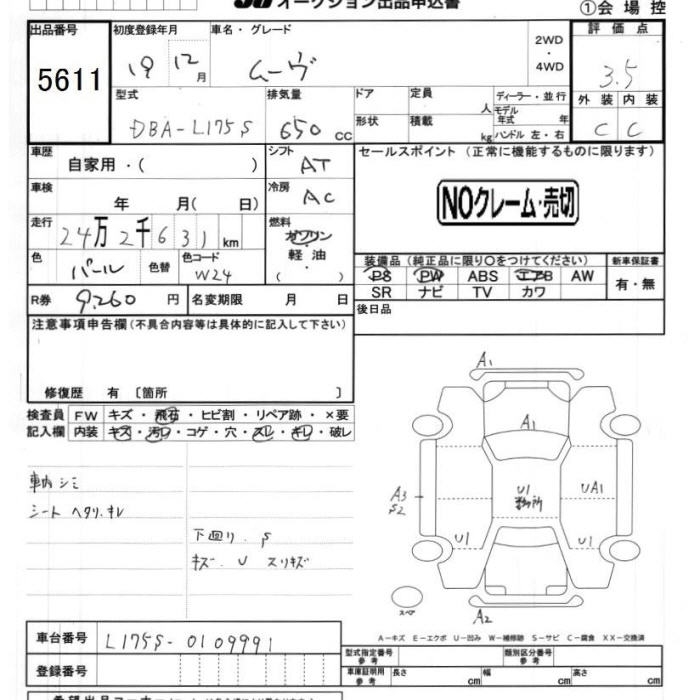 オークション出品申込書
①会場控
出品番号 初度登録年月 車名・グレード 2WD・4WD 評価点
5611 19 12月 ムーヴ 3.5
型式 排気量 ドア 定員 人 ディーラー・並行 外装 内装
DBA-L175S 650 cc 形状 積載 kg モデル年式 年 ハンドル 左・右 C C
車歴 自家用・( ) シフト AT セールスポイント (正常に機能するものに限ります)
車検 年 月( 日) 冷房 AC NOクレーム・売切
走行 24万2千631km 燃料 ガソリン・軽油 ( )
色 パール 色替 色コード W24 装備品 (純正品に限り○をつけてください) 新車保証書
PS PW ABS エアB AW 有・無
SR ナビ TV カワ
R券 9,260円 名変期限 月 日 後日品
注意事項申告欄(不具合内容等は具体的に記入して下さい)
修復歴 有 〔箇所 〕
検査員 FW キズ・飛石・ヒビ割・リペア跡・×要
記入欄 内装 キズ・汚レ・コゲ・穴・スレ・キレ・破レ
車内シミ
シートヘタリ.キレ
下回り.S
キズ.U スリキズ
A1
A1
A3
S2
U1
UA1
U1
U1
スペア
A2
A-キズ E-エクボ U-凹み W-補修跡 S-サビ C-腐食 XX-交換済
車台番号 L175S-0109991
型式指定番号 参考 類別区分番号 参考
登録番号 車庫証明用 参考 長さ cm 幅 cm 高さ cm